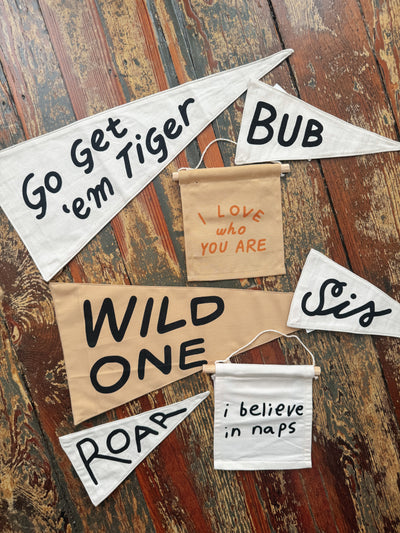 Go Get
'em Tiger
BUB
I LOVE
who
YOU ARE
WILD
ONE
Sis
i believe
in naps
ROAR